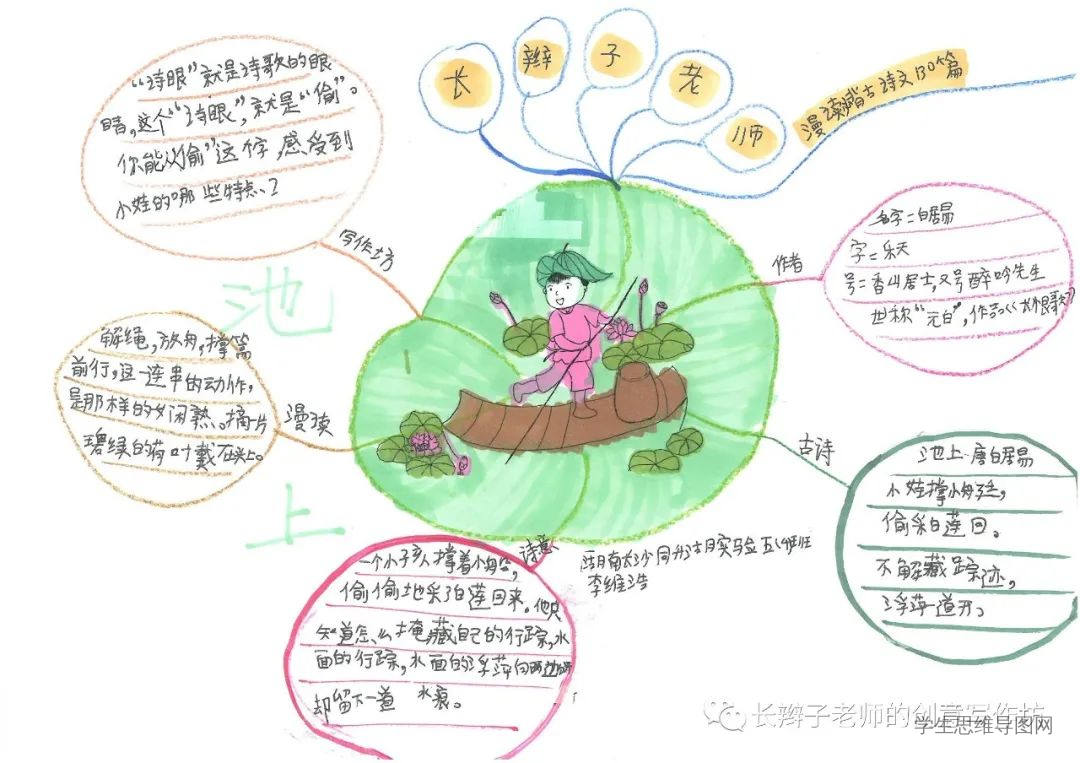 长辫子老师
漫读漫背古诗文130篇
“诗眼”就是诗歌的眼
睛,这个“诗眼”,就是“偷”。
你能从“偷”这个字,感受到
小娃的哪些特点?
写作坊
池
上
作者
名字:白居易
字:乐天
号:香山居士又号醉吟先生
世称“元白”,作品《长恨歌》
解绳,放舟,撑篙
前行,这一连串的动作,
是那样的娴熟。摘一片
碧绿的荷叶戴在头上。
漫读
古诗
池上 唐白居易
小娃撑小舟连,
偷采白莲回。
不解藏踪迹,
浮萍一道开。
诗意
一个小子孩撑着小船,
偷偷地采了白莲回来。他只
知道怎么掩藏自己的行踪,水
面的行踪,水面的浮萍向两边
却留下一道 水痕。
湖南长沙同升湖实验五
李维浩
长辫子老师的创意写作坊
学生思维导图网